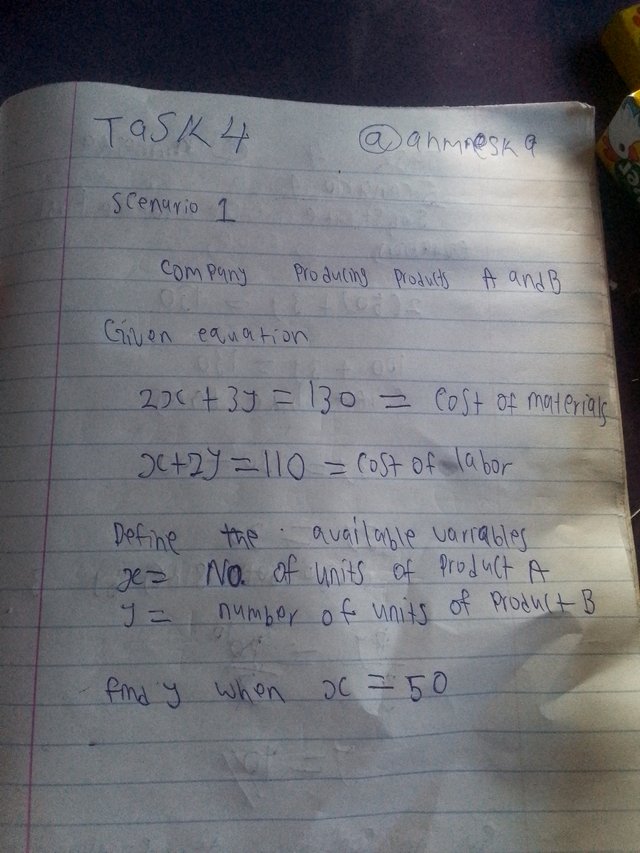 TaSK 4 @ahmneska
Scenario 1
Company Producing Products A and B
Given equation
2x + 3y = 130 = Cost of materials
x+2y = 110 = Cost of labor
Define the available variables
x = No. of units of Product A
y = number of units of Product B
find y when x = 50